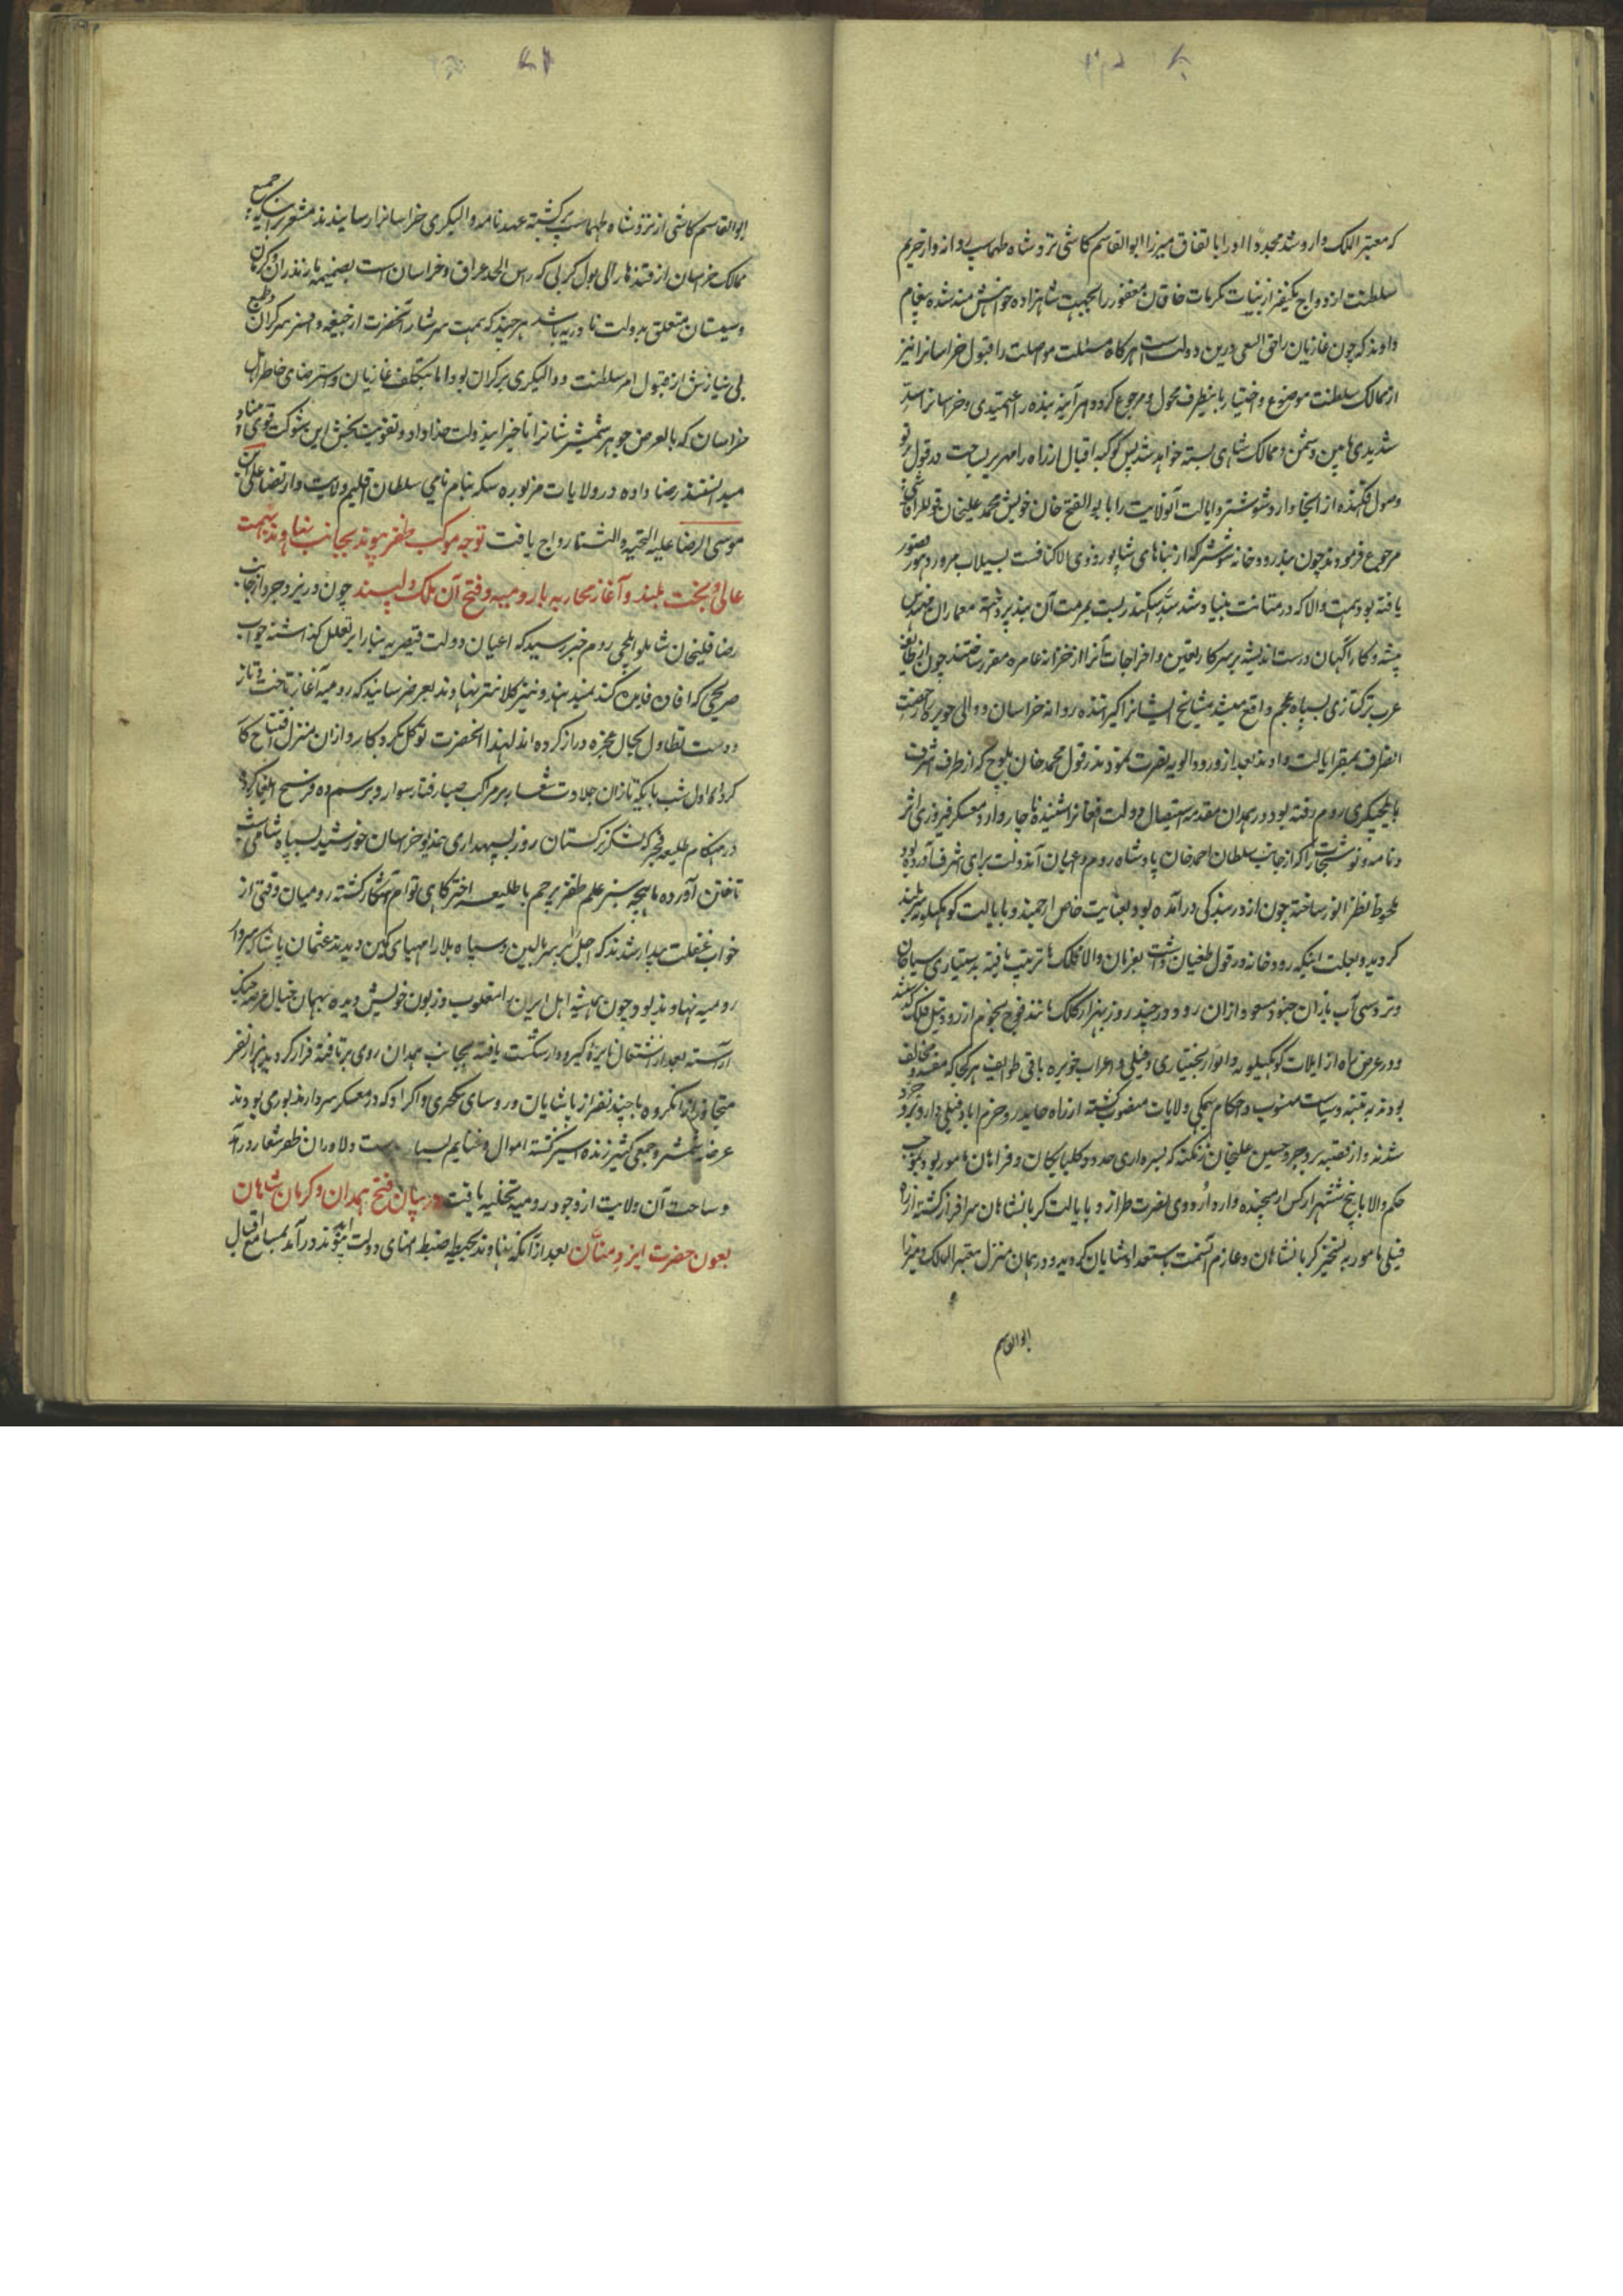 که معتبر الملک وارد شد مجددا او را باتفاق میرزا ابوالقاسم کاشی نزد شاه طهماسب روانه و از حریم
سلطنت ازدواج یکنفر از بنات مکرمات خاقان مغفور را بجهت شاهزاده خواهش مند شده پیغام
دادند که چون غازیان را حق السعی درین دولت است هرگاه مسئلت مواصلت را قبول خراسانرا نیز
از ممالک سلطنت موضوع و اختیار باینطرف محول و مرجوع کردد هر آینه بنده را عین امیدی و خراسانرا سد
شدیدی مابین دشمن و ممالک شاهی بسته خواهد شد پس کوکبه اقبال از راه رامهرمز بساحت دورق پرتو
وصول افکنده از آنجا وارد شوشتر و ایالت آنولایت را با ابوالفتح خان خویش محمد علیخان قوللر آقاسی
مرجوع فرمودند چون بند رودخانه شوشتر که از بناهای شاپور ذوی الاکتاف است بسیلاب مرور دهور قصور
یافته بود همت والا که در متانت بنیاد رشک سد سکندر است بمرمت آن بند پرداخته معماران مهندس
پیشه و کارآگهان درست اندیشه بر سر کار تعیین و اخراجات آنرا از خزانه عامره مقرر ساختند چون از طایفه
عرب ترکتازی بسپاه عجم واقع میشد مشایخ ایشانرا کرفته روانه خراسان و والی حویزه را رخصت
انصراف بمقر ایالت دادند بعد از ورود الویه نصرت نمود بدزفول محمد خان بلوچ که از طرف اشرف
بایلچیگری روم رفته بود در همدان مقدمه استیصال دولت افغانرا شنیده ناچار وارد معسکر فیروزی اثر
و نامه و نوشتجات را که از جانب سلطان احمد خان پادشاه روم و اعیان آندولت برای اشرف آورده بود
ملحوظ نظر انور ساخته چون از در بندگی درآمده بود بعنایت خاص ارجمند و بایالت کوهکیلویه سربلند
گردید و بعلت اینکه رودخانه دزفول طغیان داشت بفرمان والا کلک ها ترتیب یافته بدستیاری سباحان
و تردستی آب بازان جنود مسعود از آن رود در چند روز بهزار کلک مانند فوج نجوم از رود نیل فلک گذشتند
و در عرض راه از ایلات کوهکیلویه و الوار بختیاری و فیلی و اعراب حویزه باقی طوایف هر کجا که مفسد و مخالف
بودند به تنبیه و سیاست منسوب و حکام بهمگی ولایات منصوب گشته از راه جایدر و خرم اباد فیلی وارد بروجرد
شدند و از قصبه بروجرد حسین علیخان زنگنه که بسرداری حدود کلپایکان و فراهان مامور بود بموجب
حکم والا با پنج ششهزار کس از همه جنده وارد اردوی نصرت طراز و بایالت کرمانشاهان سرافراز گشته از راه
فیلی مامور به تسخیر کرمانشاهان و عازم آنسمت باستعداد شایان گردید و در همان منزل معتبر الملک و میرزا
ابوالقاسم
ابوالقاسم کاشی از نزد شاه طهماسب برگشته عهد نامه والیگری خراسانرا رسانیدند مشعر براینکه جمیع
ممالک خراسان از قندهار الی پول کربی که راس الحد عراق و خراسان است بضمیمه مازندران و کرمان
و سیستان متعلق بدولت نادریه باشد هر چند که همت سرشار آنحضرت از جیفه و افسر سرگران و طبع
بی نیازش از قبول امر سلطنت و والیگری بر کران بود اما بتکلیف غازیان و استرضای خاطر اهل
خراسان که بالعرض جوهر شمشیر شانرا ناخیر ایندولت خداداد و تقویت بخش این شوکت قوی بنیاد
میدانستند رضا داده در ولایات مزبوره سکه بنام نامی سلطان اقلیم ولایت و ارتضا علی بن
موسی الرضا علیه التحیه والثنا رواج یافت توجه موکب ظفر پیوند بجانب نهاوند بهمت
عالی و بخت بلند و آغاز محاربه با رومیه و فتح آن ملک دلپسند چون در نیز و جرد از جانب
رضا قلیخان شاملو ایلچی روم خبر رسید که اعیان دولت قیصریه بنا را بر تعلل گذاشته جواب
صریحی که افاده فایده کند نمیدهند و نیز کلانتر نهاوند بعرض رسانید که رومیه آغاز تاخت و تاز
و دست تطاول بحال عجزه دراز کرده اند لهذا آنحضرت توکل بکردکار و از آن منزل افتتاح کار
کرده اول شب با یکه تازان جلادت شعار بر مراکب صبا رفتار سوار و بر سم ده فرسخ ایلغار کرده
در هنکام طلیعه فجر که لشکر ترکستان روز بسپهداری خدیو خراسان خورشید بسپاه شامی شب
تاختن آورده ماهچه سنبر علم ظفر پرچم با طلیعه اختر کاهی توام آشکار گشته رومیان وقتی از
خواب غفلت بیدار شدند که اجل را بر سر بالین و سپاه بلا را مهیای کمین دیدند عثمان پاشا که سردار
رومیه نهاوند بود چون همیشه اهل ایران را مغلوب و زبون خویش دیده بهمان خیال عرصه جنگ
آراسته بعد از اشتعال نایره کیرودار شکست یافته بجانب همدان روی برتافته فرار کردند هزار نفر
متجاوز از انگروه با چند نفر از پاشایان و روسای ینکچری و اکراد که در معسکر سردار مزبور می بودند
عرضه شمشیر و جمعی کثیر زنده اسیر گشته اموال و غنایم بسیار بدست دلاوران ظفر شعار درآمد
و ساحت آن ولایت از وجود رومیه تخلیه یافت در بیان فتح همدان و کرمان شاهان
بعون حضرت ایزد منان بعد از آنکه نهاوند بحیطه ضبط امنای دولت ابد پیوند درآمد بمسامع اقبال